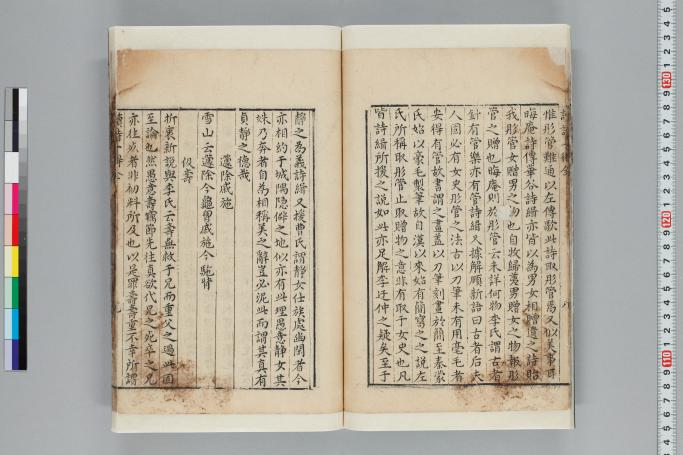 惟彤管難通以左傳歎此詩取彤管焉又以美事耳
晦庵詩傳華谷詩緝亦皆以為男女相贈遺之詩貽
我彤管女贈男之物也自牧歸荑男贈女之物報彤
管之贈也晦庵則於彤管云未詳何物李氏謂古者
針有管樂亦有管詩緝又據解頤新語曰古者后夫
人固必有女史彤管之法古以刀筆未有用毫毛者
安得有管故書謂之畫蓋以刀筆刻畫於簡至秦蒙
氏始以毫毛製筆故自漢以來始有簡寫之之說左
氏所稱取彤管止取贈物之意非有取于女史也凡
皆詩緝所援之說如此亦足解李迂仲之疑矣至于
靜之為義詩緝又援曹氏謂靜女仕族處幽閒者今
亦相約于城隅隱僻之地似亦有此理愚意靜女其
姝乃奔者自為相稱美之辭豈必泥此而謂其真有
貞靜之德哉
蘧除戚施
雪山云蘧除今龜胷戚施今駞背
伋壽
折衷新說與李氏云壽無救于兄而重父之過此固
至論也然愚意壽竊節先往真欲代兄之死卒之兄
亦往或者非初料所及也以是罪壽壽重不幸所謂